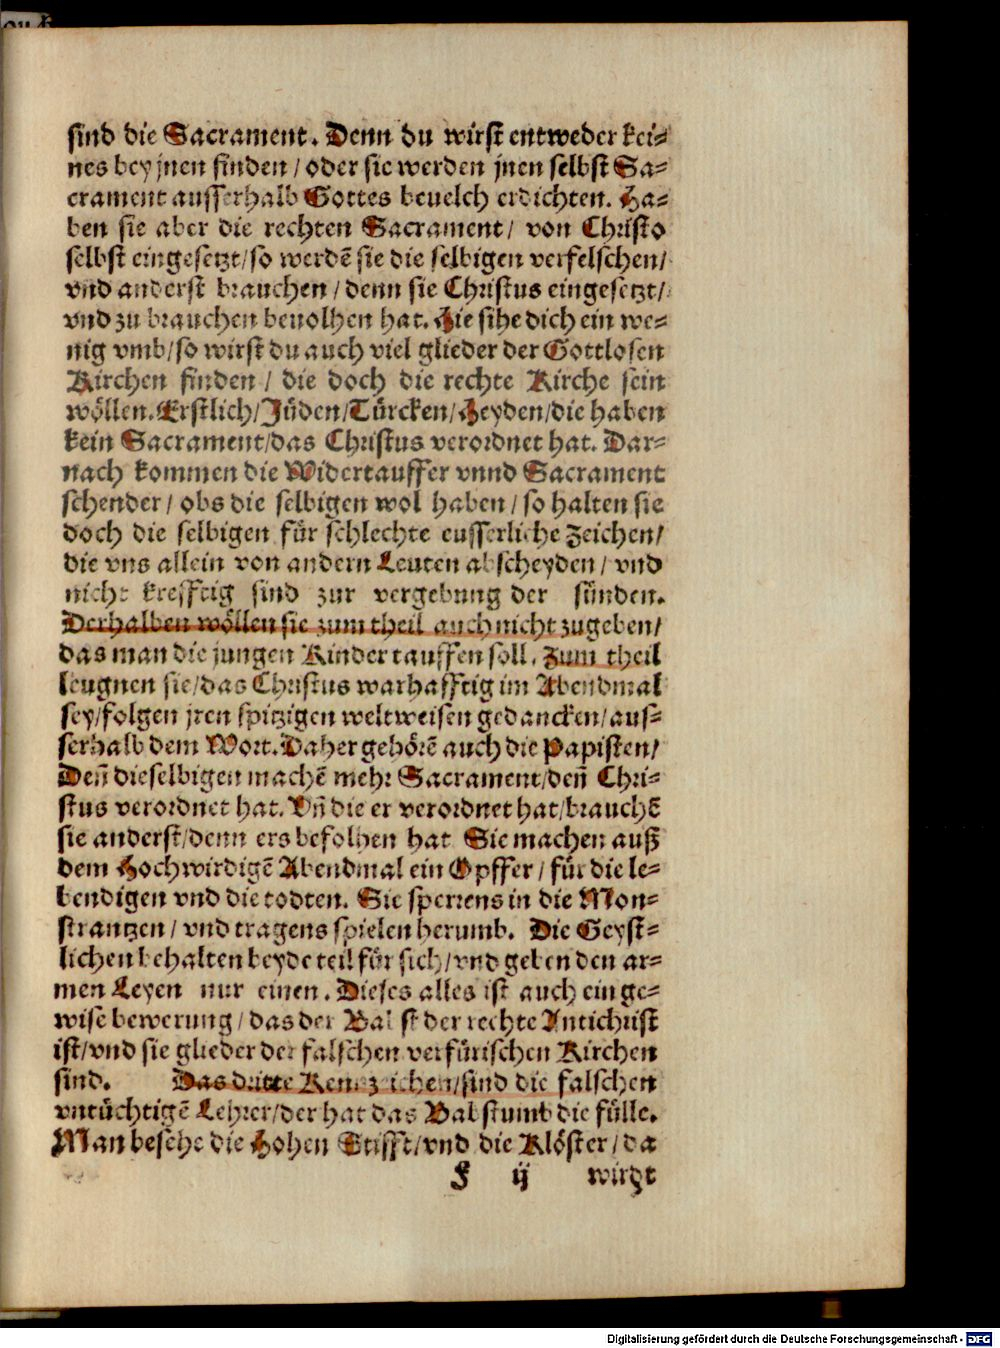 sind die Sacrament. Denn du wirst entweder kei-
nes bey jnen finden / oder sie werden jnen selbst Sa-
crament ausserhalb Gottes beuelch erdichten. Ha-
ben sie aber die rechten Sacrament / von Christo
selbst eingesetzt / so werdē sie die selbigen verfelschen /
vnd anderst brauchen / denn sie Christus eingesetzt /
vnd zu brauchen beuolhen hat. Hie sihe dich ein we-
nig vmb / so wirst du auch viel glieder der Gottlosen
Kirchen finden / die doch die rechte Kirche sein
wöllen. Erstlich / Jüden / Türcken / Heyden / die haben
kein Sacrament / das Christus verordnet hat. Dar-
nach kommen die Widertauffer vnnd Sacrament
schender / obs die selbigen wol haben / so halten sie
doch die selbigen für schlechte eusserliche Zeichen /
die vns allein von andern Leuten abscheyden / vnd
nicht krefftig sind zur vergebung der sünden.
Derhalben wöllen sie zum theil auch nicht zugeben /
das man die jungen Kinder tauffen soll. Zum theil
leugnen sie / das Christus warhafftig im Abendmal
sey / folgen jren spitzigen weltweisen gedancken / aus-
serhalb dem Wort. Daher gehörē auch die Papisten /
Deñ dieselbigen machē mehr Sacrament / deñ Chri-
stus verordnet hat. Vñ die er verordnet hat / brauchē
sie anderst / denn ers befolhen hat Sie machen auß
dem Hochwirdigē Abendmal ein Opffer / für die le-
bendigen vnd die todten. Sie sperrens in die Mon-
strantzen / vnd tragens spielen herumb. Die Geyst-
lichen behalten beyde teil für sich / vnd geben den ar-
men Leyen nur einen. Dieses alles ist auch ein ge-
wise bewerung / das der Babst der rechte Antichrist
ist / vnd sie glieder der falschen verfürischen Kirchen
sind. Das dritte Kennzeichen / sind die falschen
vntüchtigē Lehrer / der hat das Babstumb die fülle.
Man besehe die Hohen Stifft / vnd die Klöster / da
F ij wirdt
Digitalisierung gefördert durch die Deutsche Forschungsgemeinschaft - DFG